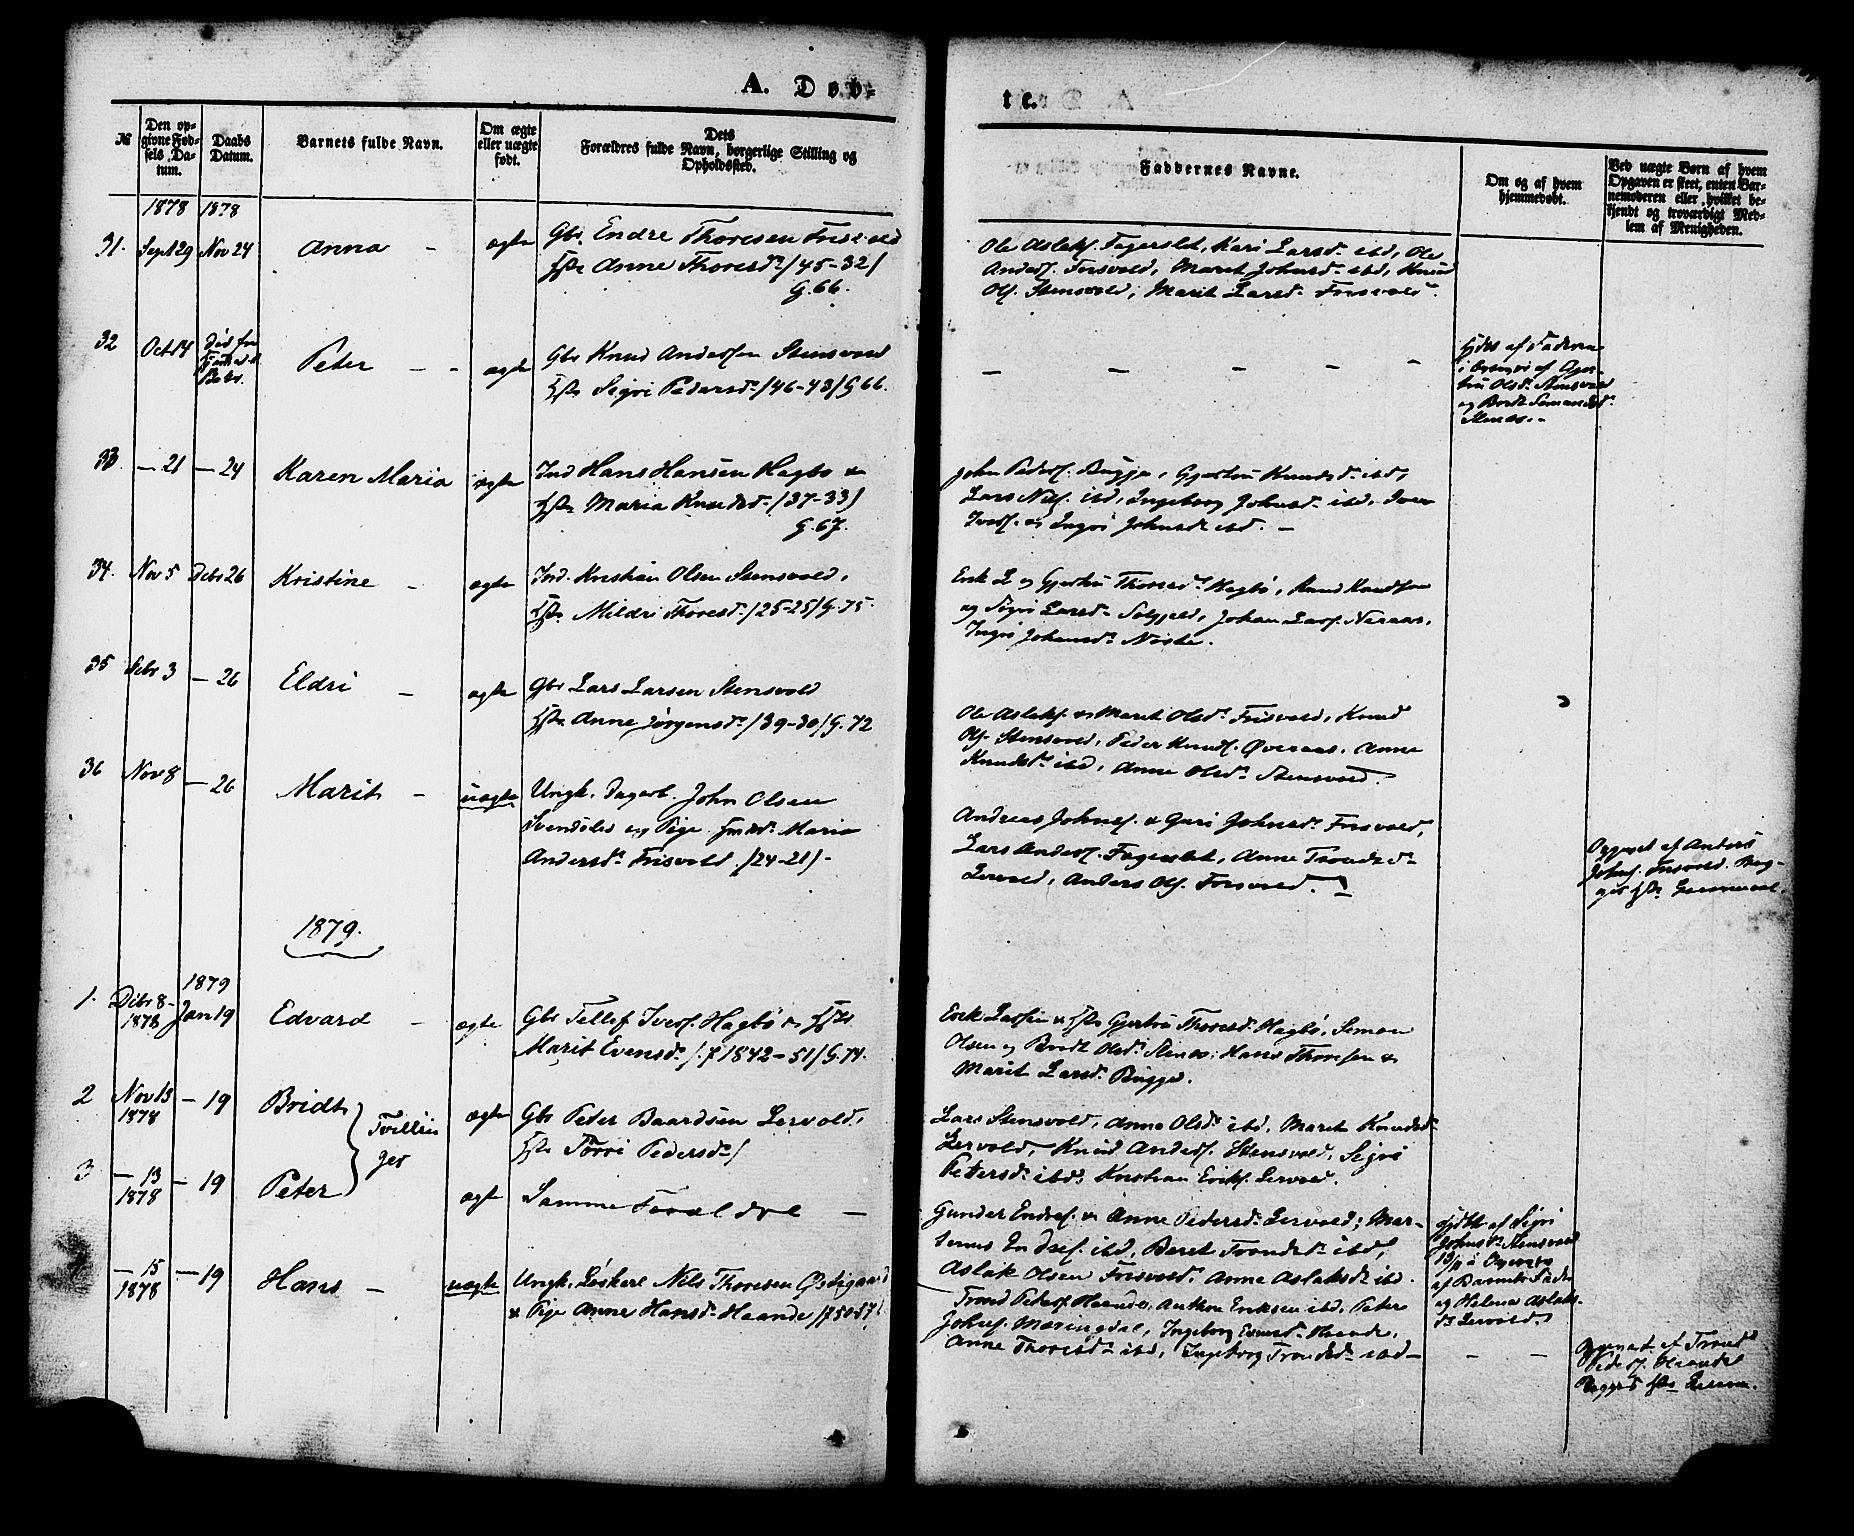 A. Døb-
te.
№
Den opgivne Fødsels Datum.
Daabs Datum.
Barnets fulde Navn.
Om ægte eller uægte født.
Dets Forældres fulde Navn, borgerlige Stilling og Opholdssted.
Faddernes Navne.
Om og af hvem hjemmedøbt.
Ved uægte Børn af hvem Opgaven er skeet, enten Barnemoderen eller hvilket bekjendt og troværdigt Medlem af Menigheden.
1878 1878
31. Sept 29 Nov 24 Anna - ægte Gbr Endre Thoresen Frisvold
Hstr Anne Thoresdr /45-32/
G.66.
Ole Aslaks. Fagerslet, Kari Larsdr ibd, Ole
Anders. Frisvold, Marit Johnsdr ibd, Knud
Ols. Stensvold, Marit Larsdr Frisvold.
32 Oct 14 Død før
Peter - - ægte Gbr Knud Andersen Stensvold
Hstr Sigri Pedersdr /46-43/ G 66.
- - - - -
hjdt af Faderen
Olsdr Stensvold
33 - 21 - 24 Karen Maria ægte Ind Hans Hansen Hagbø &
Hstr Maria Knudsdr /37-33/
G.67.
John Peders. Bugge, Gjertru Knudsdr ibd,
Lars Nils. ibd, Ingeborg Johnsdr ibd, Iver
Ivers. & Ingri Johnsdr ibd. -
34. Nov 5 Dcbr 26 Kristine - ægte Ind. Kristian Olsen Stensvold,
Hstr Mildri Thoresdr /25-25/ G.75.
Erik L og Gjertru Thoresdr Hagbø, Knud Knudsen
og Sigri Larsdr Solgjeld, Johan Lars. Neraas,
Ingri Johansdr Nøste.
35 Dcbr 3 - 26 Eldri - ægte Gbr Lars Larsen Stensvold
Hstr Anne Jørgensdr /39-30/ G.72
Ole Aslaks. & Marit Olsdr Frisvold, Knud
Ols. Stensvold, Peder Knuds. Øveraas, Anne
Knudsdr ibd, Anne Olsdr Stensvold.
36 Nov 8 - 26 Marit - uægte Ungk. Dagarb. John Olsen
Svendslid og Pige Maria
Andersdr Frisvold /24-21/-
Andreas Johns. & Guri Johnsdr Frisvold,
Lars Anders. Fagerslet, Anne Trondsdr
Lervold, Anders Ols. Frisvold.
Opgivet af Anders
Johns. Frisvold.
1879.
1879
1. Dcbr 8- 1878 Jan 19 Edvard - ægte Gbr Tellef Ivers. Hagbø & Hstr
Marit Evensdr /f 1842-51/ G.74.
Erik Larsen & Hstr Gjertru Thoresdr Hagbø, Simon
Olsen og Brodt Olsdr Stenæs, Hans Thoresen &
Marit Larsdr Bugge.
2 Nov 13 1878 - 19 Bridt ægte Gbr Peter Baardsen Lervold,
Tvillinger
Hstr Torri Pedersdr /
Lars Stensvold, Anne Olsdr ibd, Marit Knudsdr
Lervold, Knud Anders. Stensvold, Sigri
Petersdr ibd, Kristian Eriks. Lervold.
3 - 13 1878 - 19 Peter ægte Samme Forældre -
Gunder Endres. & Anne Pedersdr Lervold,
Endres. ibd, Beret Trondsdr ibd,
Aslak Olsen Frisvold, Anne Aslaksdr ibd.
hjdt af Sigri
Johnsdr Stensvold
af Barnets Fader
og Helena Aslaksdr Lervold
- 15 1878 - 19 Hans - uægte Ungk. Løskarl Nils Thoresen Østigaard
& Pige Anne Hansdr Haande /f 50-57/
Trond Peders. Haande, Anthon Eriksen ibd, Peter
Johns. Mæringdal, Ingeborg Haande,
Anne Thoresdr ibd, Ingeborg Trondsdr ibd -
- -
Opgivet af Trond
Peders. Haande